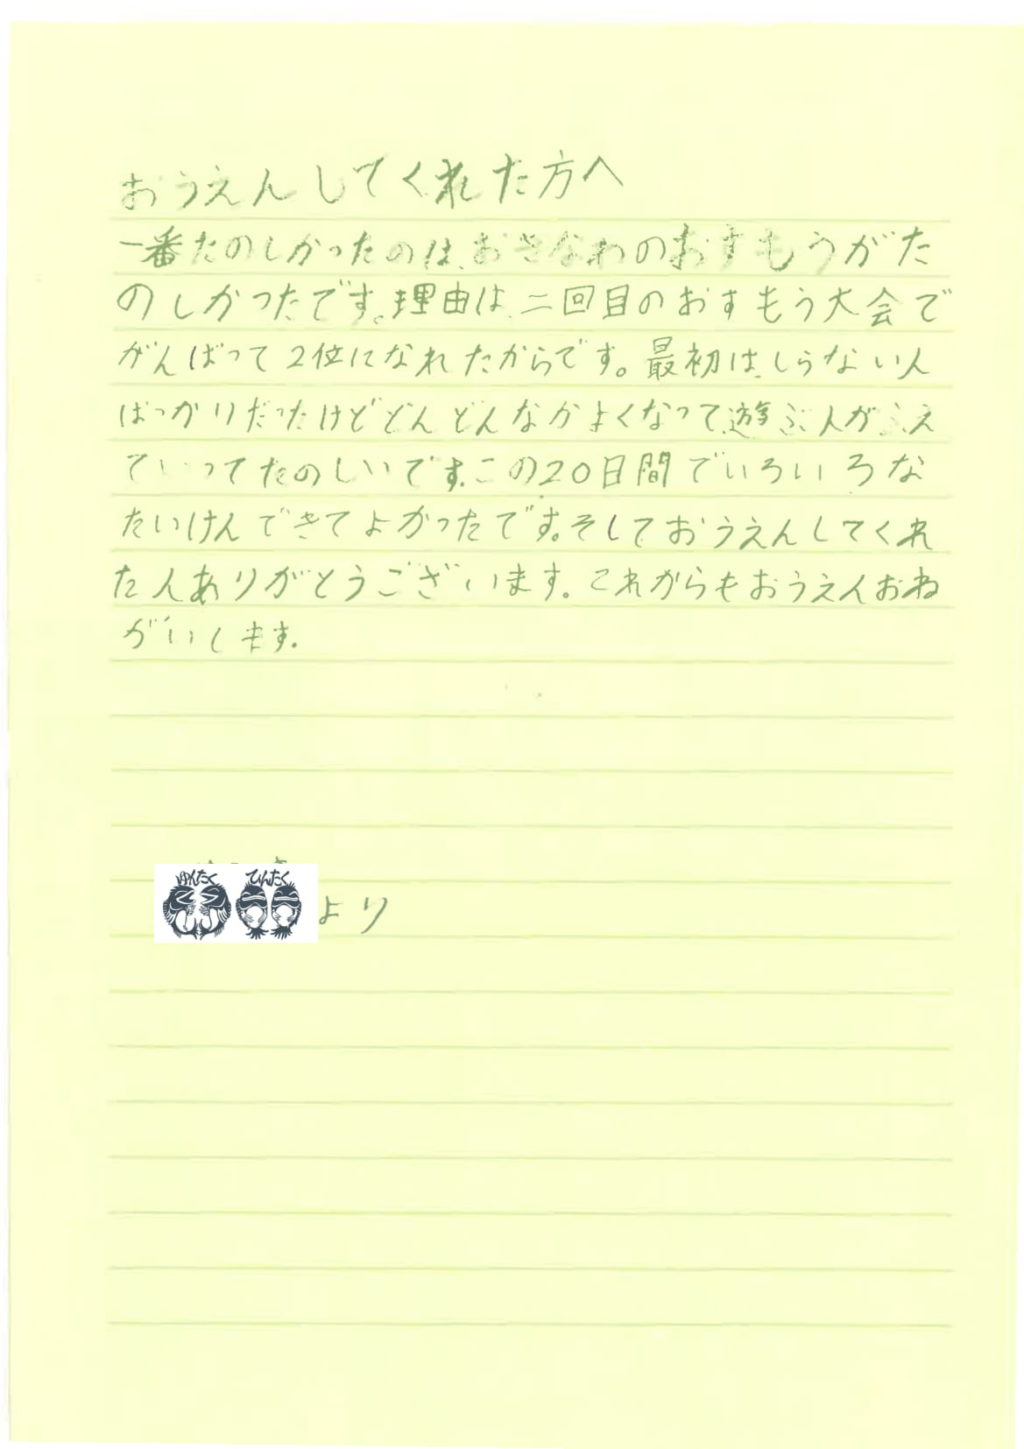 おうえんしてくれた方へ
一番たのしかったのは、おきなわのおすもうがた
のしかったです。理由は、二回目のおすもう大会で
がんばって2位になれたからです。最初は、しらない人
ばっかりだったけどどんどんなかよくなって、遊ぶ人がふえ
ていってたのしいです。この20日間でいろいろな
たいけんできてよかったです。そしておうえんしてくれ
た人ありがとうございます。これからもおうえんおね
がいします。
ゆんたく ひんたく
より